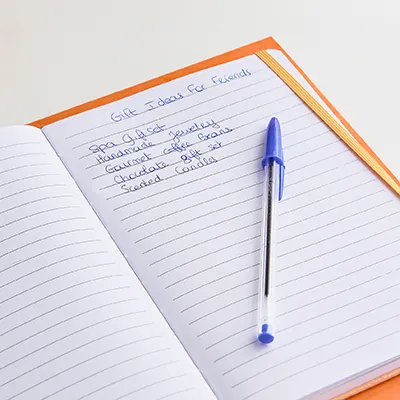 Gift Ideas For Friends
Spa Gift Set
Handmade Jewelry
Gourmet Coffee Beans
Chocolate Gift Set
Scented Candles